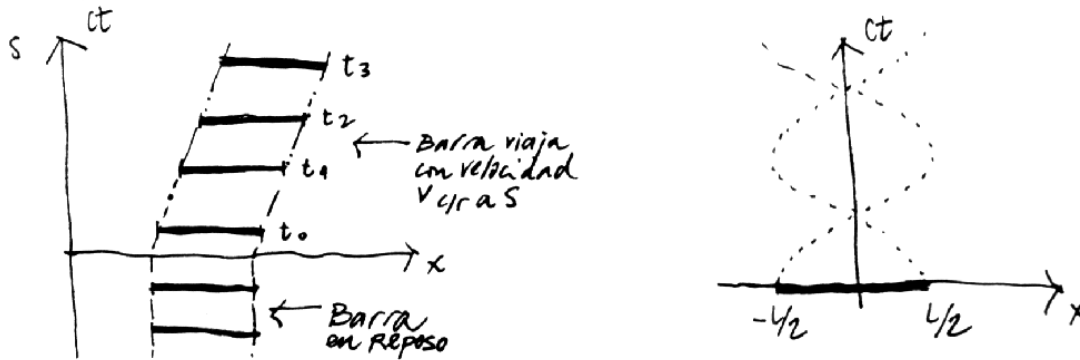 S
ct
t3
t2
t1
t0
Barra viaja
con velocidad
V c/r a S
x
Barra
en Reposo
ct
-L/2
L/2
x